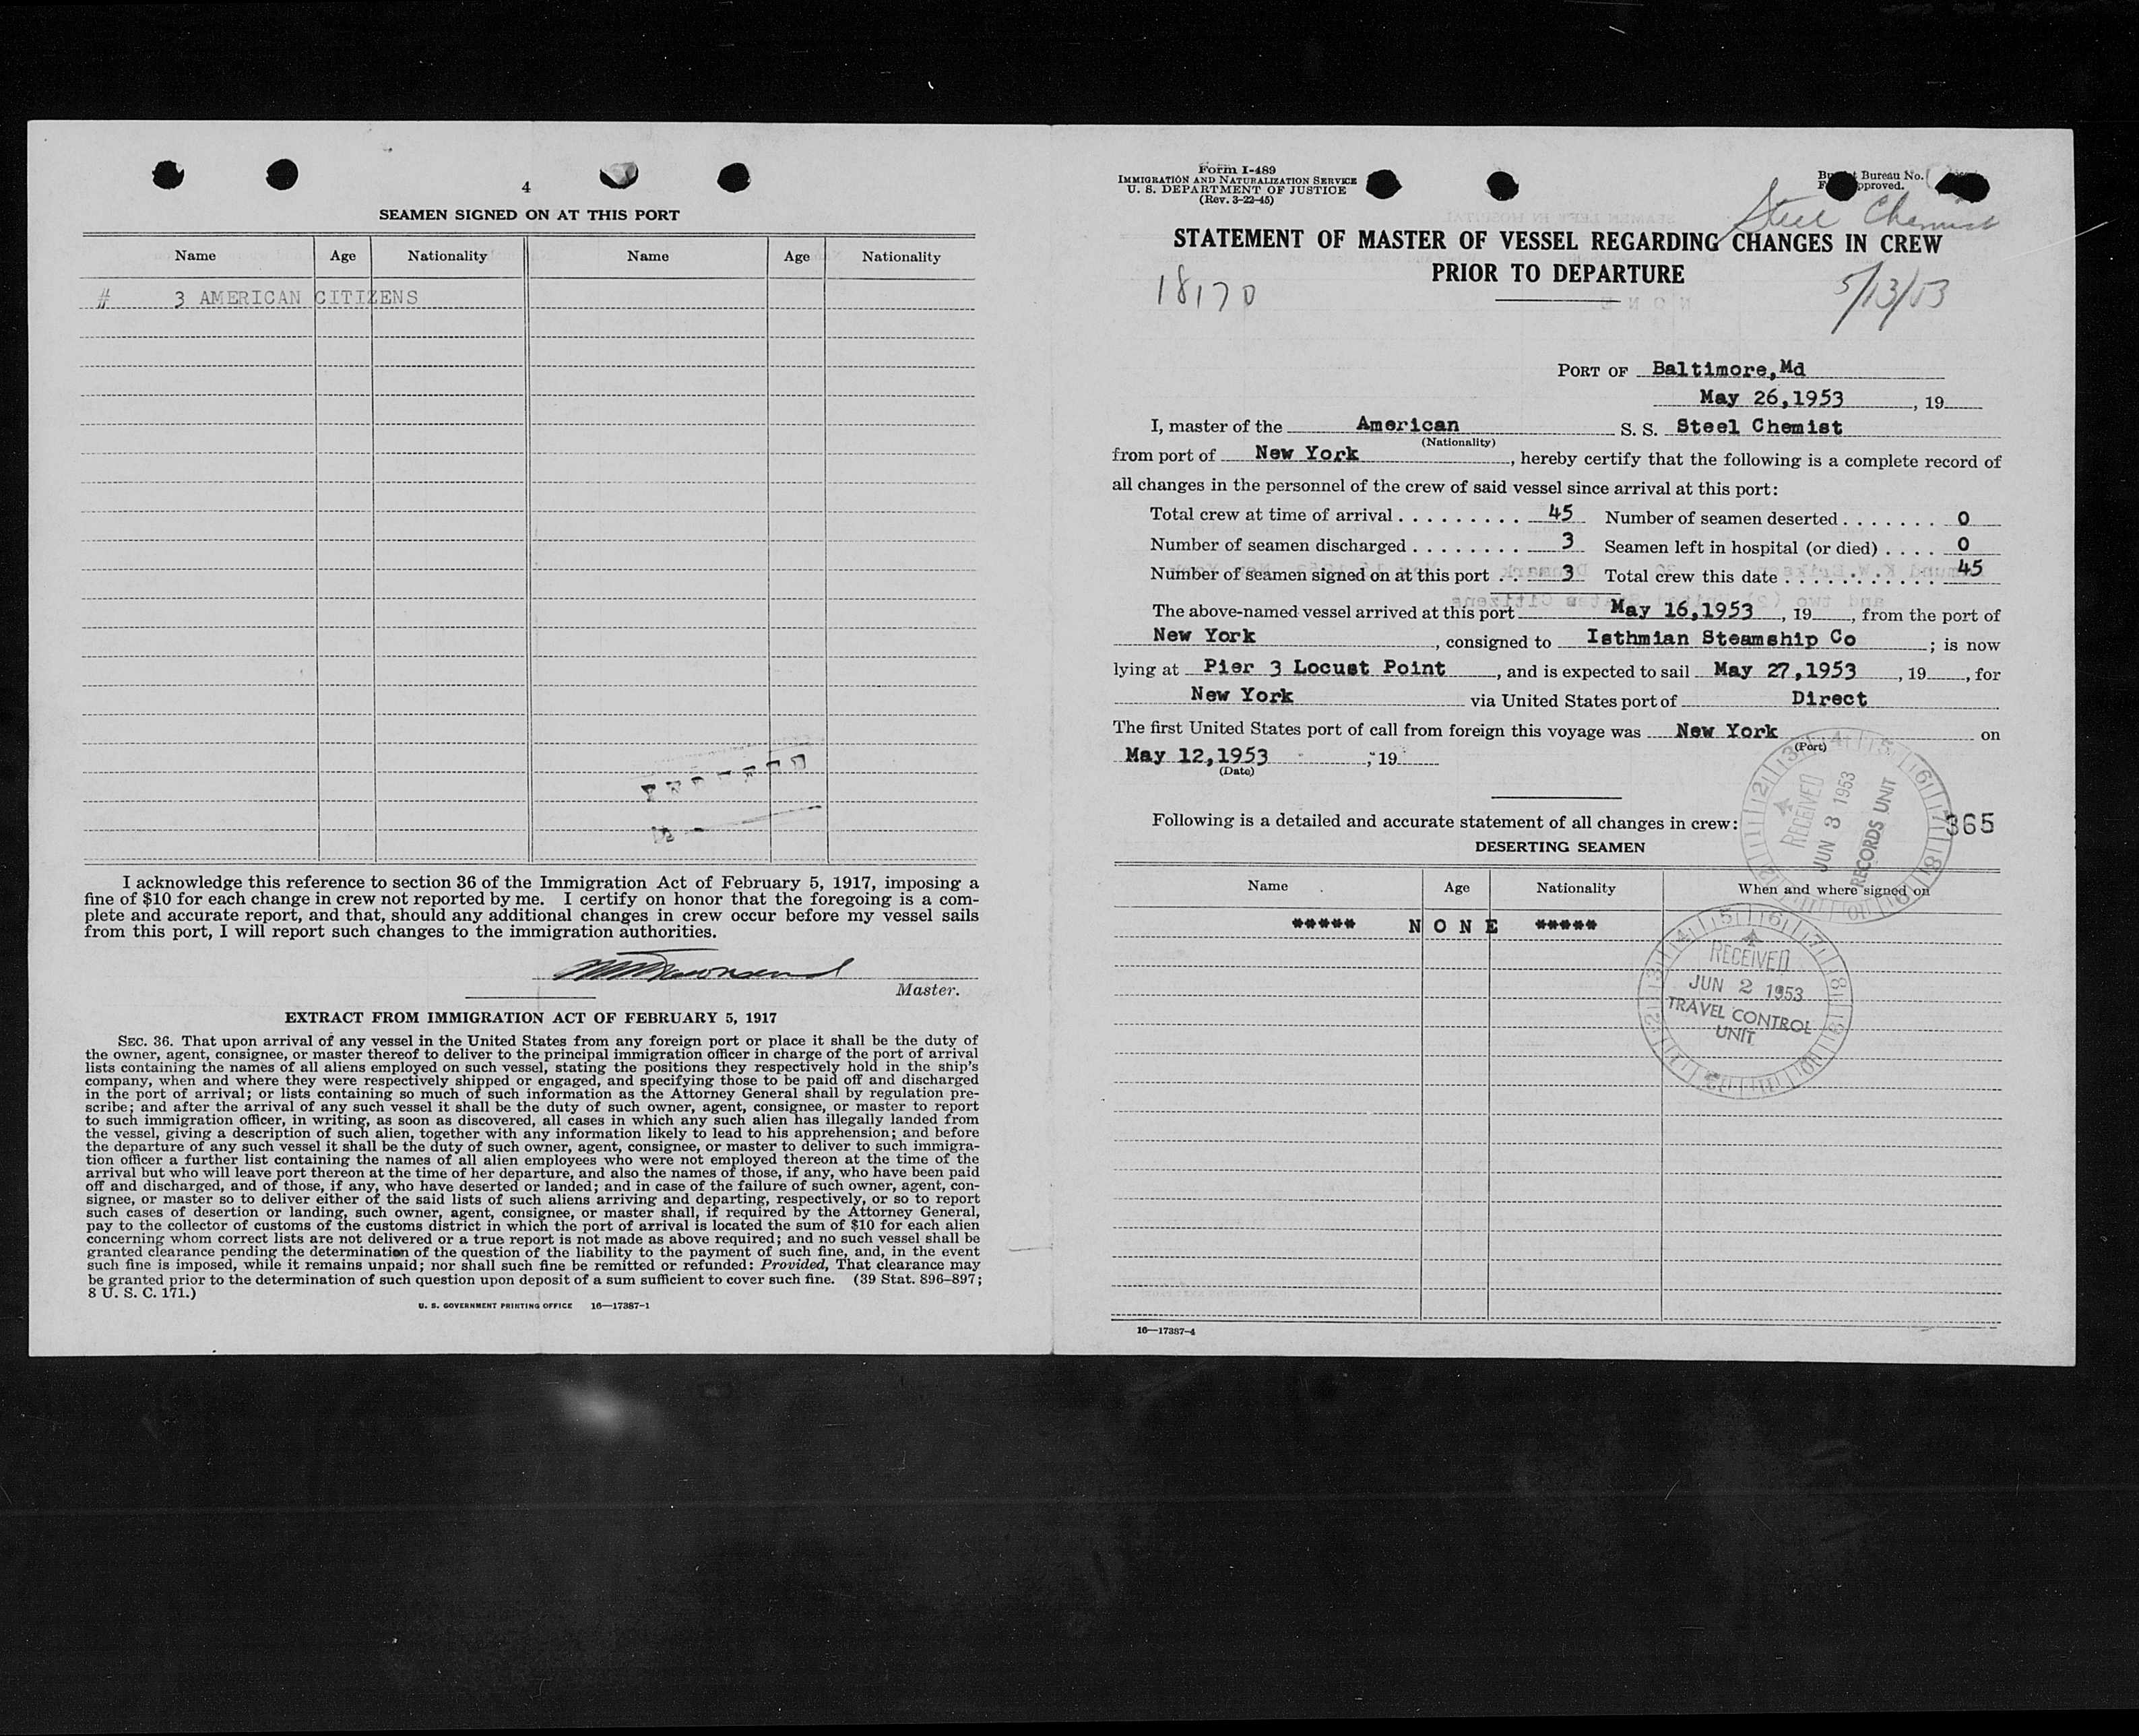 4
SEAMEN SIGNED ON AT THIS PORT
Name Age Nationality Name Age Nationality
# 3 AMERICAN CITIZENS
I acknowledge this reference to section 36 of the Immigration Act of February 5, 1917, imposing a
fine of $10 for each change in crew not reported by me. I certify on honor that the foregoing is a com-
plete and accurate report, and that, should any additional changes in crew occur before my vessel sails
from this port, I will report such changes to the immigration authorities.
Master.
EXTRACT FROM IMMIGRATION ACT OF FEBRUARY 5, 1917
SEC. 36. That upon arrival of any vessel in the United States from any foreign port or place it shall be the duty of
the owner, agent, consignee, or master thereof to deliver to the principal immigration officer in charge of the port of arrival
lists containing the names of all aliens employed on such vessel, stating the positions they respectively hold in the ship's
company, when and where they were respectively shipped or engaged, and specifying those to be paid off and discharged
in the port of arrival; or lists containing so much of such information as the Attorney General shall by regulation pre-
scribe; and after the arrival of any such vessel it shall be the duty of such owner, agent, consignee, or master to report
to such immigration officer, in writing, as soon as discovered, all cases in which any such alien has illegally landed from
the vessel, giving a description of such alien, together with any information likely to lead to his apprehension; and before
the departure of any such vessel it shall be the duty of such owner, agent, consignee, or master to deliver to such immigra-
tion officer a further list containing the names of all alien employees who were not employed thereon at the time of the
arrival but who will leave port thereon at the time of her departure, and also the names of those, if any, who have been paid
off and discharged, and of those, if any, who have deserted or landed; and in case of the failure of such owner, agent, con-
signee, or master so to deliver either of the said lists of such aliens arriving and departing, respectively, or so to report
such cases of desertion or landing, such owner, agent, consignee, or master shall, if required by the Attorney General,
pay to the collector of customs of the customs district in which the port of arrival is located the sum of $10 for each alien
concerning whom correct lists are not delivered or a true report is not made as above required; and no such vessel shall be
granted clearance pending the determination of the question of the liability to the payment of such fine, and, in the event
such fine is imposed, while it remains unpaid; nor shall such fine be remitted or refunded: Provided, That clearance may
be granted prior to the determination of such question upon deposit of a sum sufficient to cover such fine. (39 Stat. 896–897;
8 U. S. C. 171.)
U. S. GOVERNMENT PRINTING OFFICE 16—17387-1
Form I-489
IMMIGRATION AND NATURALIZATION SERVICE
U. S. DEPARTMENT OF JUSTICE
(Rev. 3-22-45)
Bureau No.
Steel Chemist
STATEMENT OF MASTER OF VESSEL REGARDING CHANGES IN CREW
PRIOR TO DEPARTURE
18170
5/13/53
PORT OF Baltimore,Md
May 26,1953 , 19
I, master of the American S. S. Steel Chemist
(Nationality)
from port of New York , hereby certify that the following is a complete record of
all changes in the personnel of the crew of said vessel since arrival at this port:
Total crew at time of arrival . . . . . . . . . 45 Number of seamen deserted . . . . . . . 0
Number of seamen discharged . . . . . . . . 3 Seamen left in hospital (or died) . . . . 0
Number of seamen signed on at this port . . 3 Total crew this date . . . . . . . . . . . 45
The above-named vessel arrived at this port May 16,1953 , 19 , from the port of
New York , consigned to Isthmian Steamship Co ; is now
lying at Pier 3 Locust Point , and is expected to sail May 27,1953 , 19 , for
New York via United States port of Direct
The first United States port of call from foreign this voyage was New York on
(Port)
May 12,1953 , 19
(Date)
RECEIVED
JUN 3 1953
RECORDS UNIT
Following is a detailed and accurate statement of all changes in crew:
365
DESERTING SEAMEN
Name Age Nationality When and where signed on
***** N O N E *****
RECEIVED
JUN 2 1953
TRAVEL CONTROL
UNIT
16—17387-4